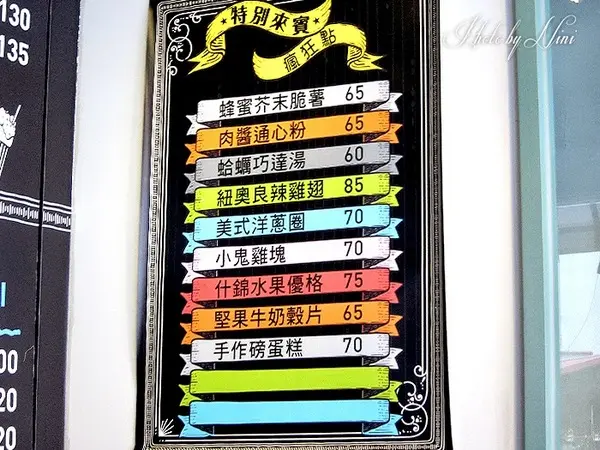 130
135
特別來賓
瘋狂點
蜂蜜芥末脆薯 65
肉醬通心粉 65
蛤蠣巧達湯 60
紐奧良辣雞翅 85
美式洋蔥圈 70
小鬼雞塊 70
什錦水果優格 75
堅果牛奶穀片 65
手作磅蛋糕 70
Photo by Nini